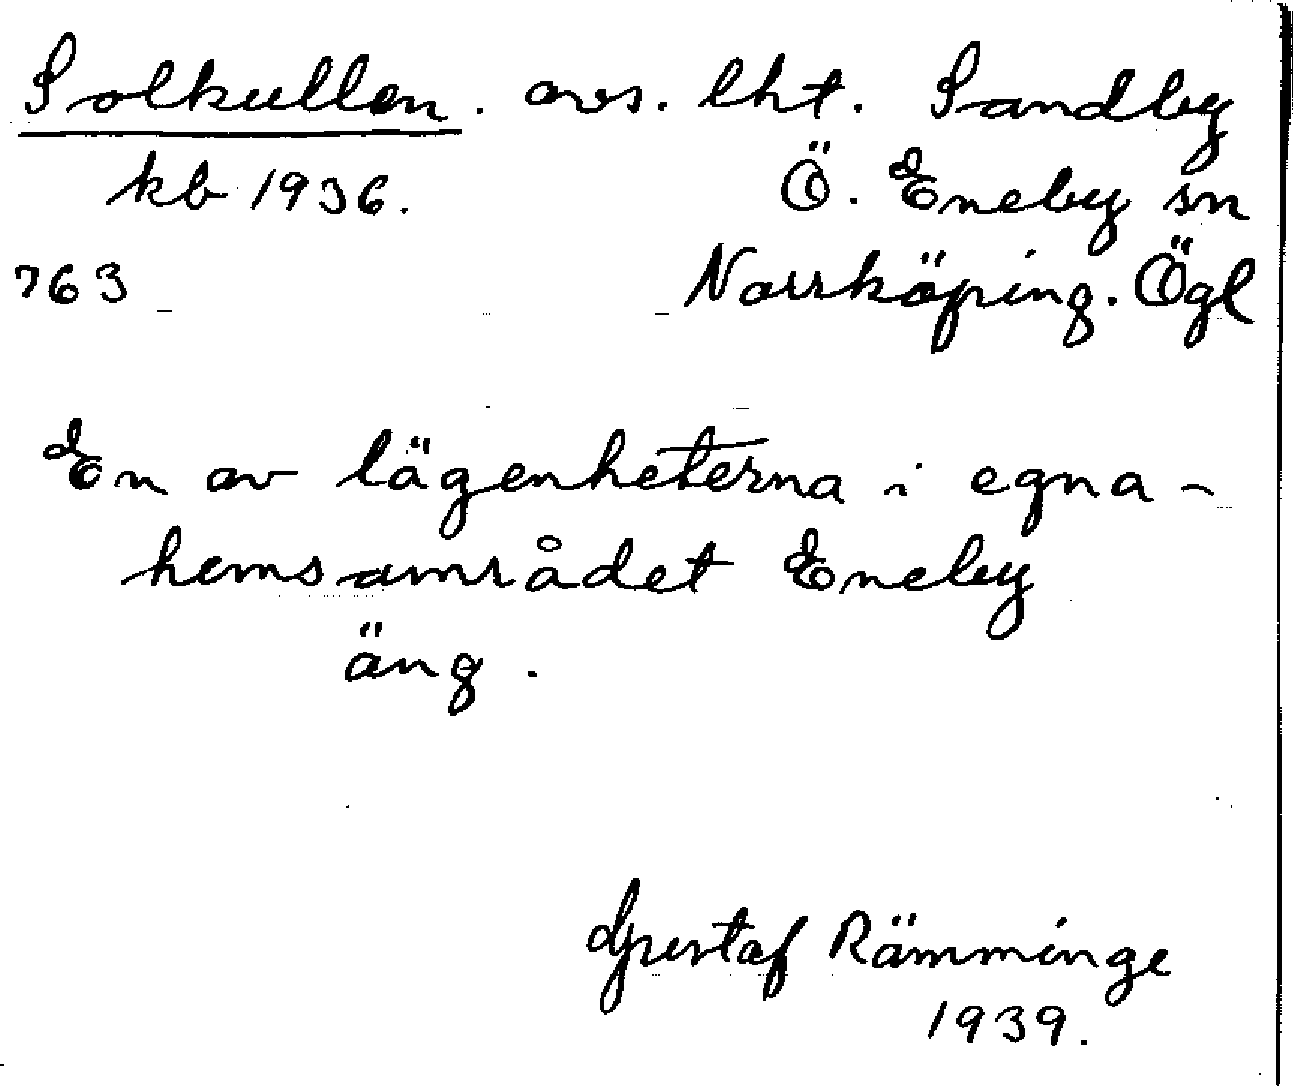 Solkullen. avs. lht. Sandby
kb 1936. Ö. Eneby sn
763 Norrköping. Ögl
En av lägenheterna i egna-
hemsområdet Eneby
äng.
Gustaf Rämminge
1939.